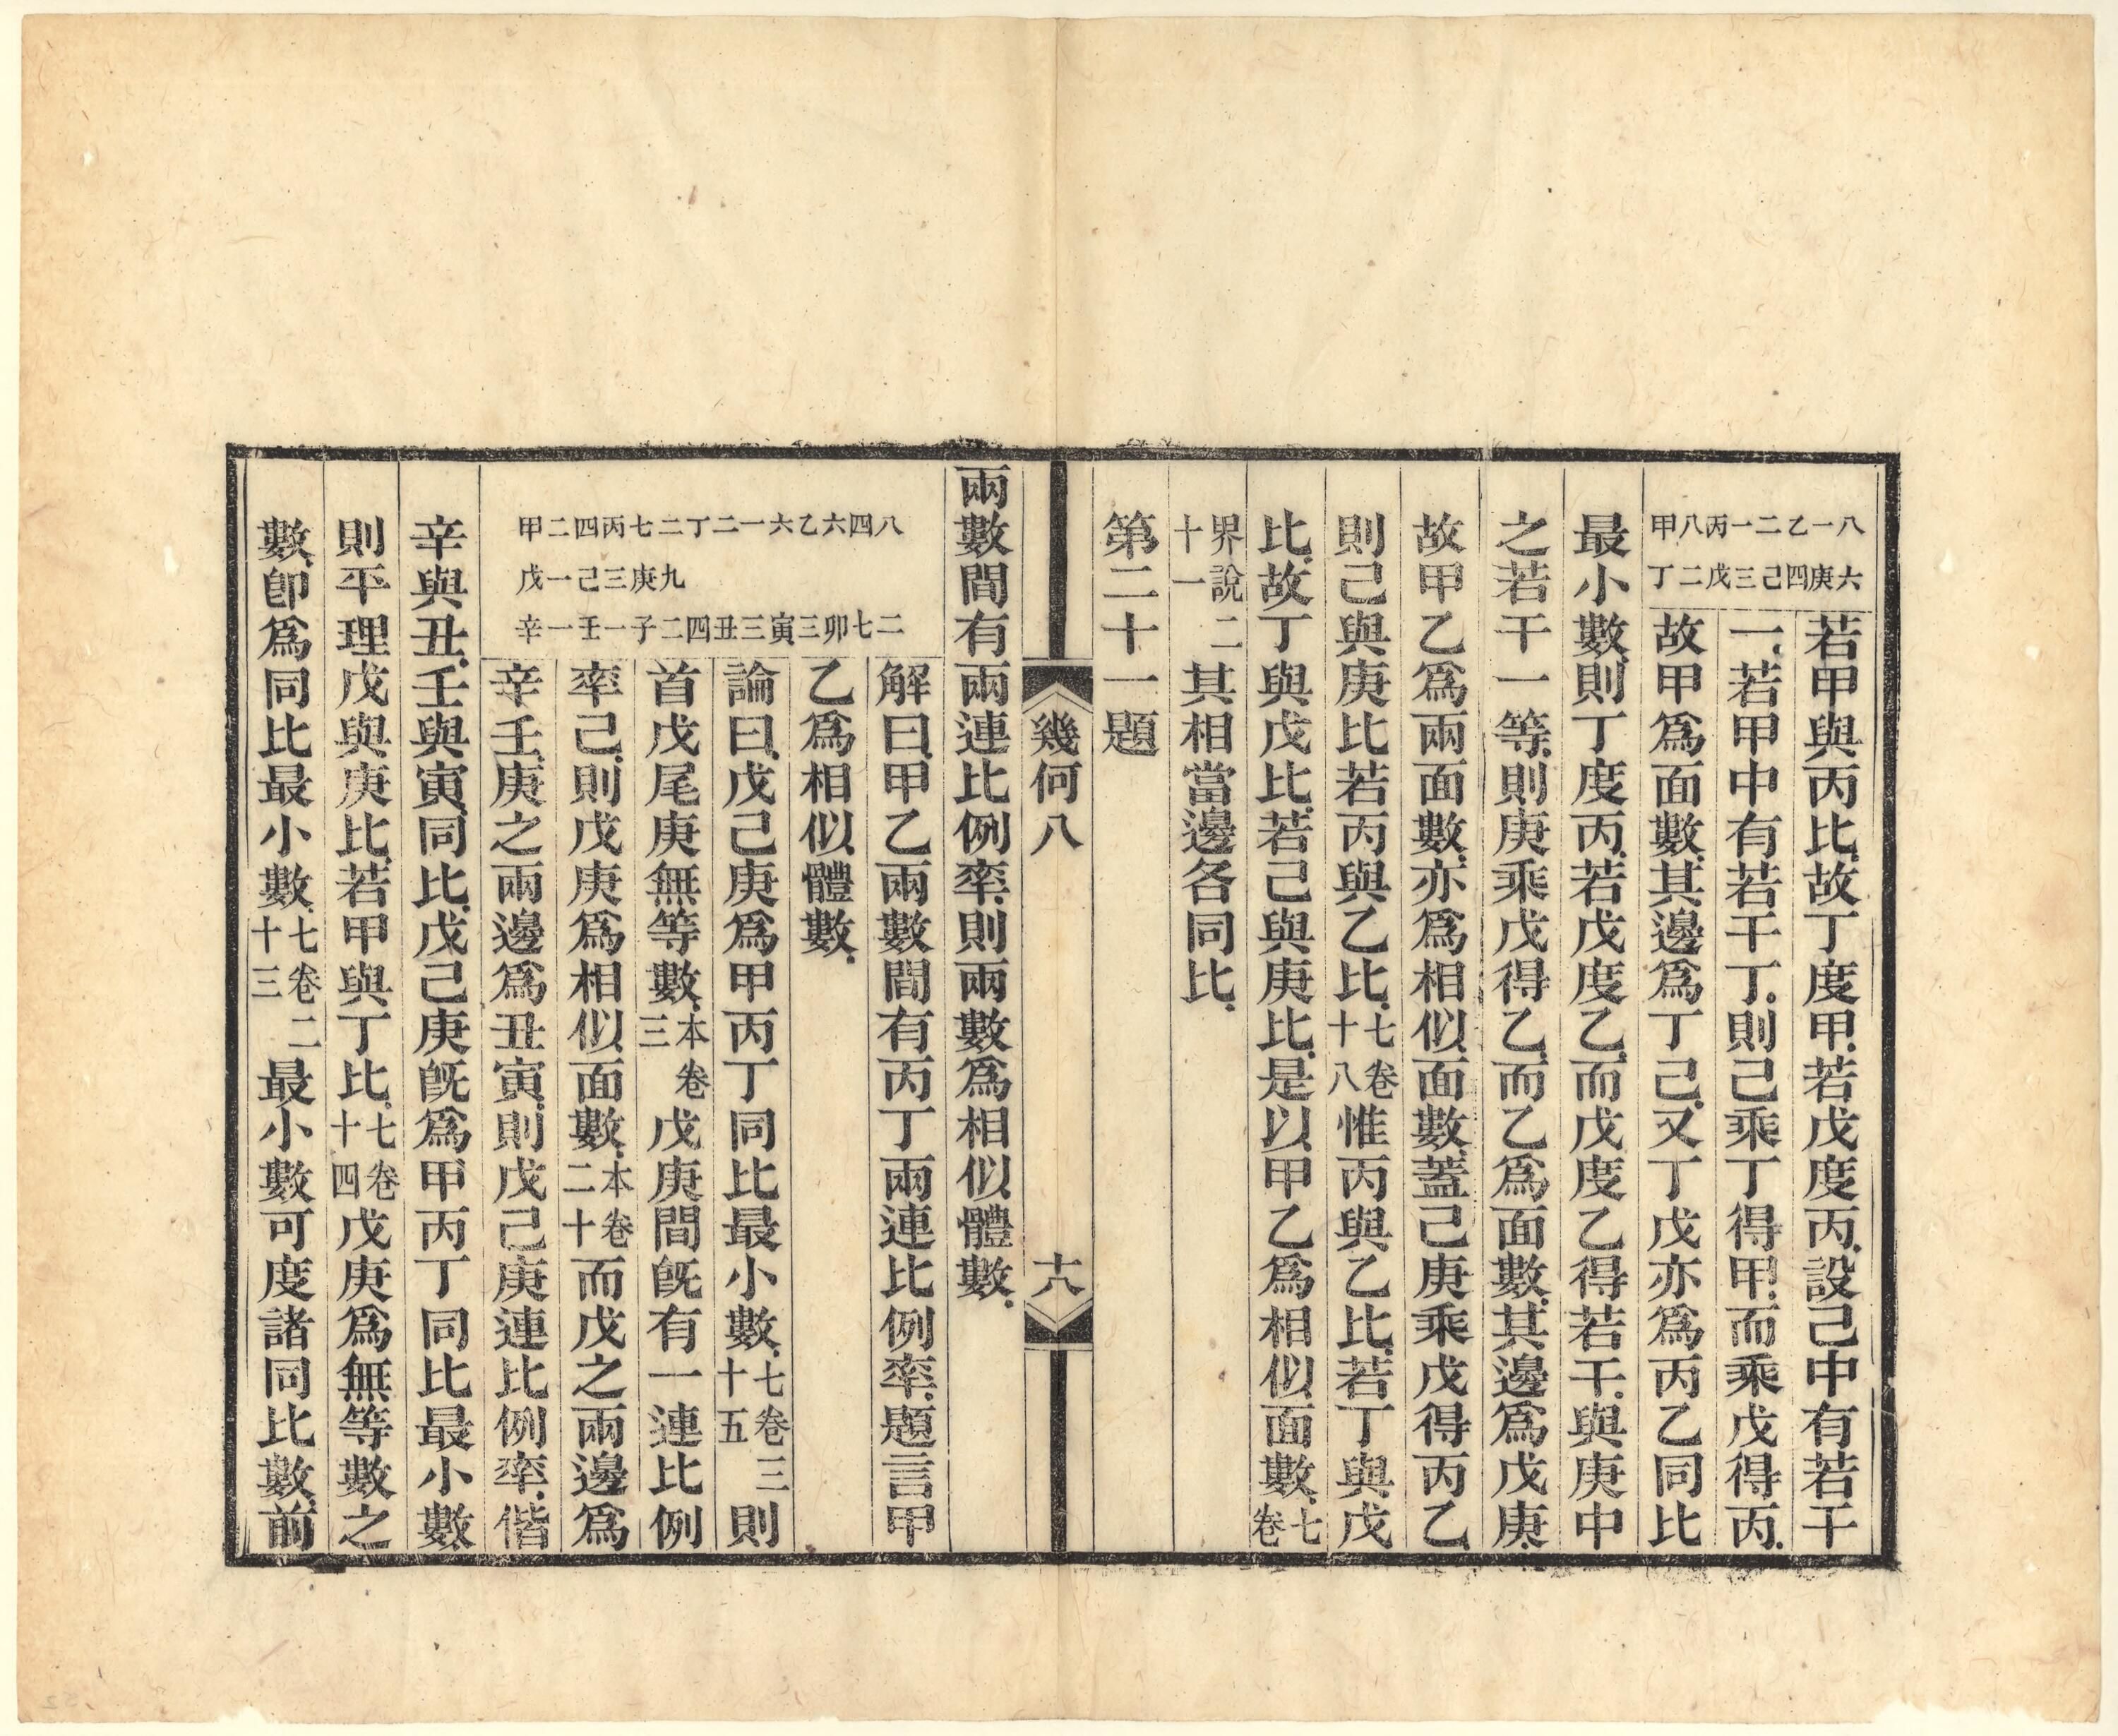 甲八丙一二乙一八
丁二戊三己四庚六
若甲與丙比、故丁度甲、若戊度丙、設己中有若干
一、若甲中有若干丁、則己乘丁得甲、而乘戊得丙、
故甲爲面數、其邊爲丁己、又丁戊亦爲丙乙同比
最小數、則丁度丙、若戊度乙、而戊度乙得若干、與庚中
之若干一等、則庚乘戊得乙、而乙爲面數、其邊爲戊庚、
故甲乙爲兩面數、亦爲相似面數、蓋己庚乘戊得丙乙
則己與庚比若丙與乙比、七卷十八惟丙與乙比、若丁與戊
比、故丁與戊比、若己與庚比、是以甲乙爲相似面數、七卷
界說二十一其相當邊各同比、
第二十一題
幾何八
十八
兩數間有兩連比例率、則兩數爲相似體數、
甲二四丙七二丁二一六乙六四八
戊一己三庚九
辛一壬一子二四丑三寅三卯七二
解曰、甲乙兩數間有丙丁兩連比例率、題言甲
乙爲相似體數、
論曰、戊己庚爲甲丙丁同比最小數、七卷三十五則
首戊尾庚無等數、本卷三戊庚間旣有一連比例
率己、則戊庚爲相似面數、本卷二十而戊之兩邊爲
辛壬、庚之兩邊爲丑寅、則戊己庚連比例率、偕
辛與丑、壬與寅、同比、戊己庚旣爲甲丙丁同比最小數、
則平理戊與庚比、若甲與丁比、七卷十四戊庚爲無等數之
數、卽爲同比最小數、七卷二十三最小數可度諸同比數、前